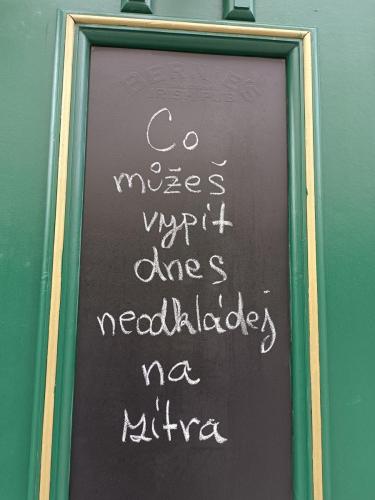 Co
můžeš
vypít
dnes
neodkládej
na
zítra